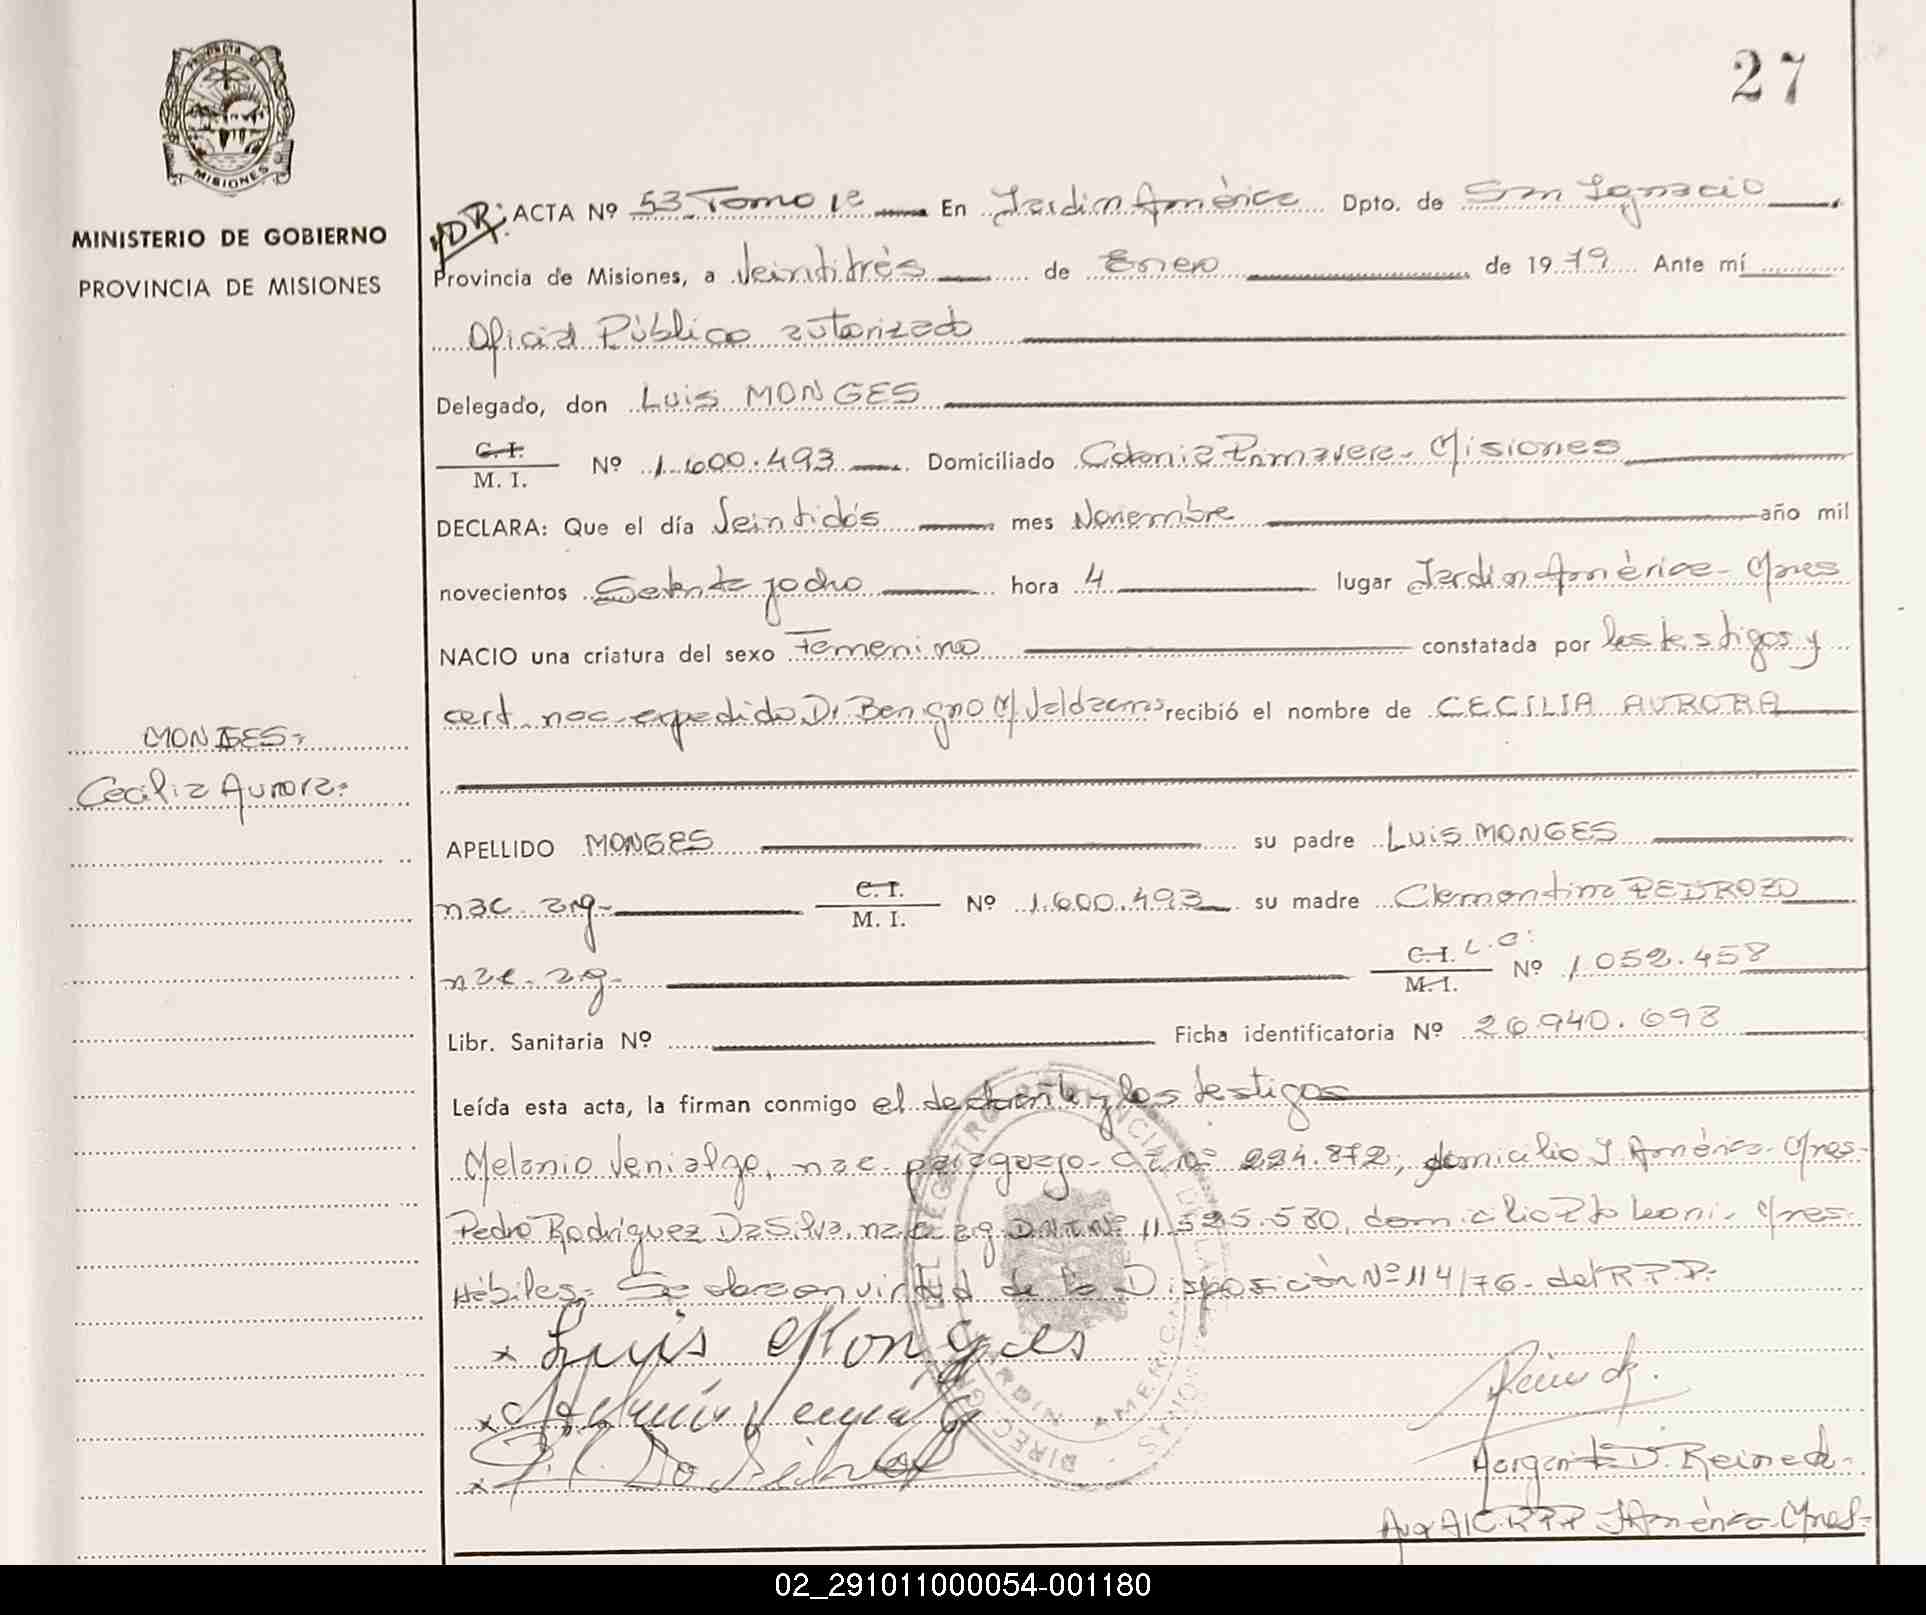 27
PROVINCIA DE
MISIONES
MINISTERIO DE GOBIERNO
PROVINCIA DE MISIONES
DR: ACTA Nº 53 Tomo 1º En Jardin América Dpto. de San Ignacio
Provincia de Misiones, a Veintitrés de Enero de 1979 Ante mí
Oficial Público autorizado
Delegado, don Luis MONGES
C. I.
M. I. Nº 1.600.493 Domiciliado Colonia Primavera - Misiones
DECLARA: Que el día Veintidós mes Noviembre año mil
novecientos Setenta y ocho hora 4 lugar Jardin América - Mnes
NACIO una criatura del sexo Femenino constatada por los testigos y
cert. nac. expedido Dr. Benigno M. recibió el nombre de CECILIA AURORA
MONGES=
Cecilia Aurora=
APELLIDO MONGES su padre Luis MONGES
nac. arg- C. I.
M. I. Nº 1.600.493 su madre Clementina PEDROZO
nac. arg- C. I. L.C:
M. I. Nº 1.052.458
Libr. Sanitaria Nº Ficha identificatoria Nº 26.940.693
Leída esta acta, la firman conmigo el declarante y los testigos
Melanio Venialgo, nac. paraguayo - C.I. Nº 224.872, domicilio J. América - Mnes -
Pedro Rodríguez Da Silva, nac. arg. D.N.I. Nº 11.525.580, domicilio Pto Leoni - Mnes=
Hábiles= Se labra en virtud de la Disposición Nº 114/76 - del R.P.P=
x Luis Monges
x
x P. R. Da Silva
Margarita D.
Aux A/C R.P.P J. América - Mnes=
02_291011000054-001180